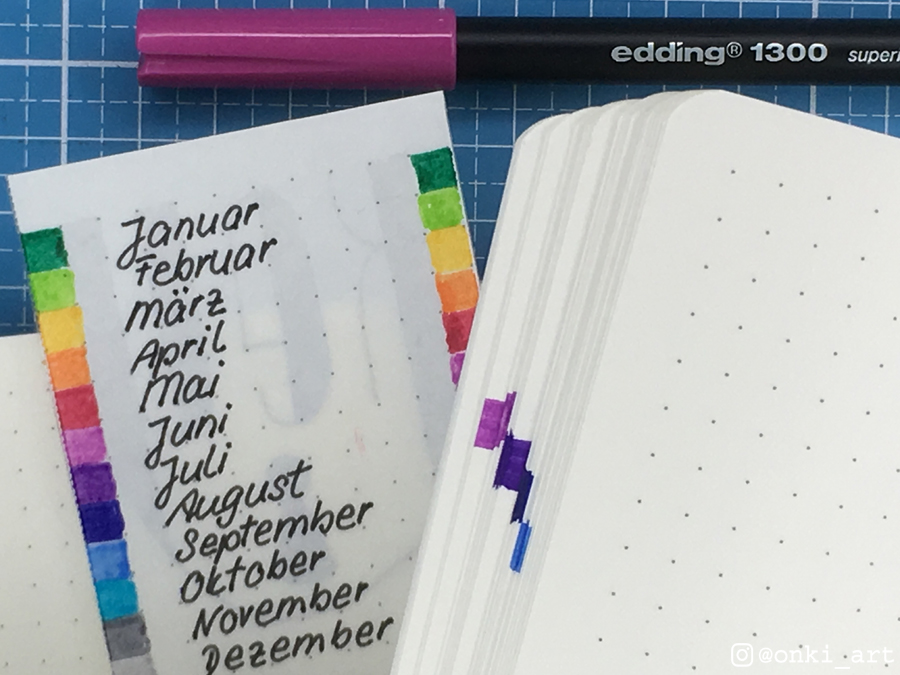 edding® 1300
Januar
Februar
März
April
Mai
Juni
Juli
August
September
Oktober
November
Dezember
@onki_art